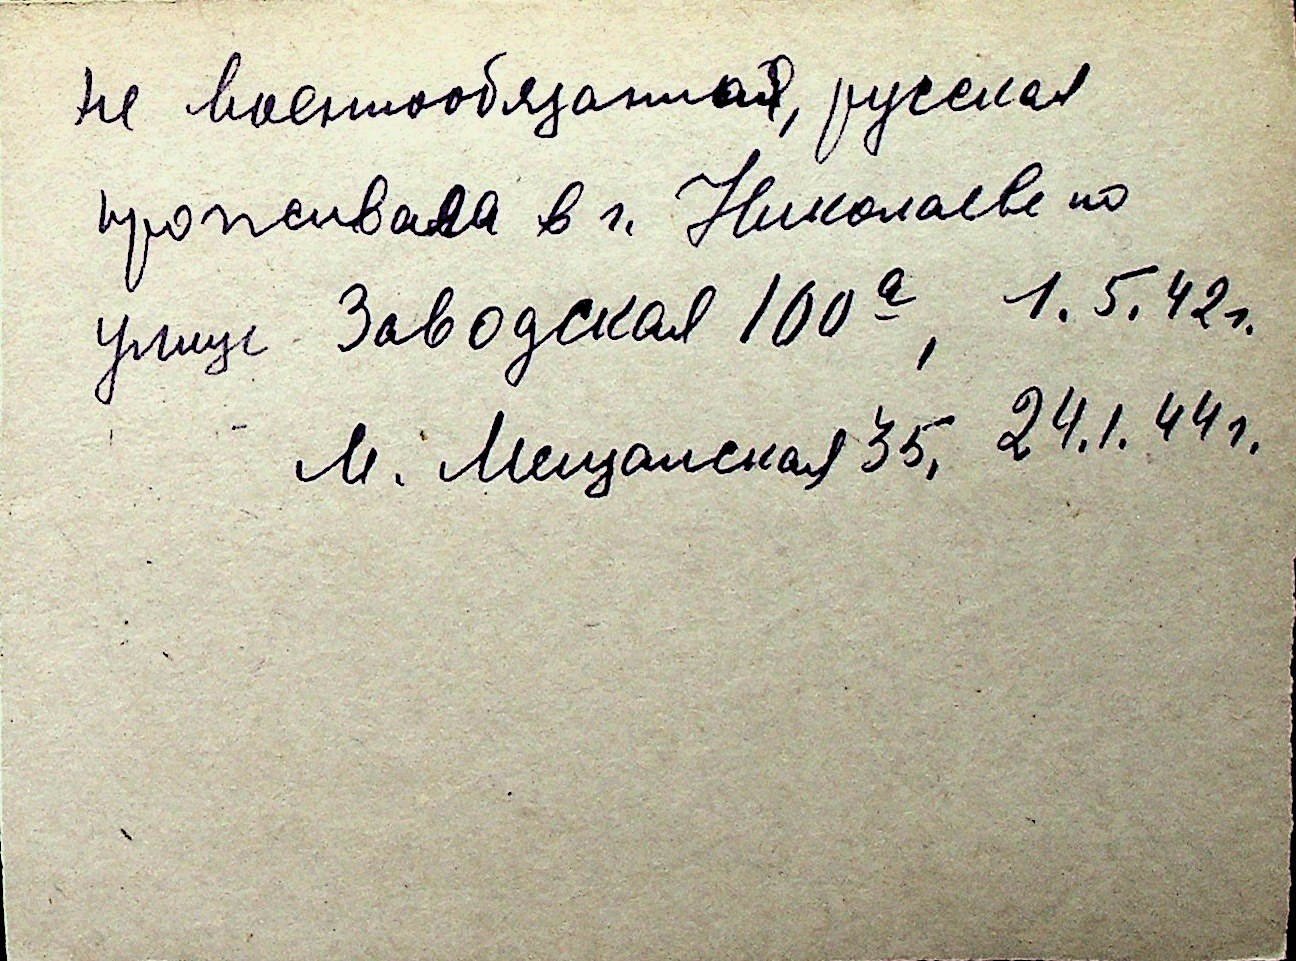 не военнообязанная, русская
проживала в г. Николаеве по
улице Заводская 100а, 1.5.42г.
М. Мещанская 35, 24.1.44г.